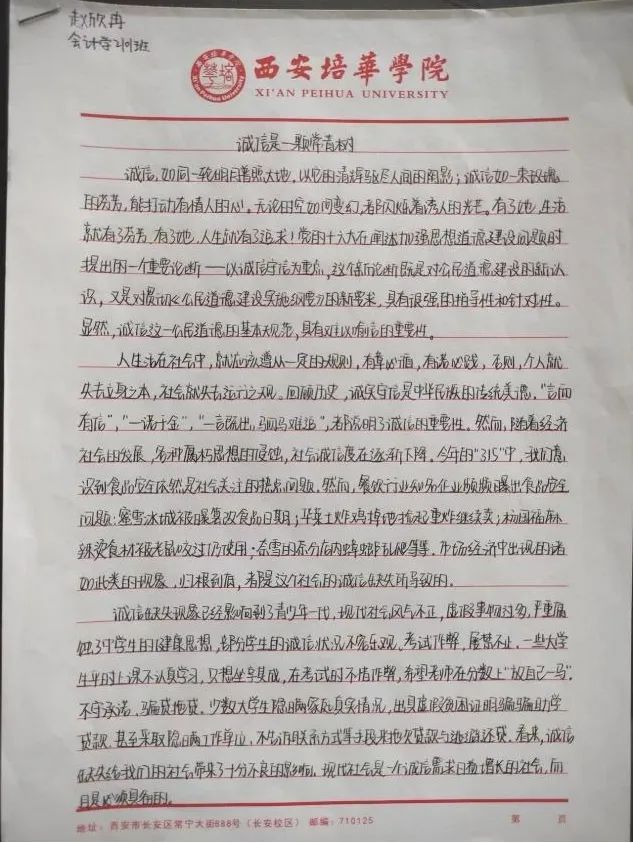 赵欣冉
会计学2101班
西安培華學院
XI'AN PEIHUA UNIVERSITY
诚信是一颗常青树
诚信,如同一轮明月普照大地,以它的清辉驱尽人间的阴影;诚信如一束玫瑰
的芬芳,能打动有情人的心。无论时空如何变幻,都闪烁着诱人的光芒。有了她,生活
就有了芬芳,有了她,人生就有了追求!党的十六大在阐述加强思想道德建设问题时
提出的一个重要论断——以诚信守信为重点,这个新论断既是对公民道德建设的新认
识,又是对贯彻《公民道德建设实施纲要》的新要求,具有很强的指导性和针对性。
显然,诚信这一公民道德的基本规范,具有难以喻言的重要性。
人生活在社会中,就应该遵从一定的规则,有章必循,有诺必践,否则,个人就
失去立身之本,社会就失去运行之规。回顾历史,诚实守信是中华民族的传统美德,“言而
有信”,“一诺千金”,“一言既出,驷马难追”,都说明了诚信的重要性。然而,随着经济
社会的发展,各种腐朽思想的侵蚀,社会诚信度在逐渐下降。今年的“315”中,我们意
识到食品安全依然是社会关注的热点问题。然而,餐饮行业知名企业频频曝出食品安全
问题:蜜雪冰城被曝篡改食品日期;华莱士炸鸡掉地捡起重炸继续卖;杨国福麻
辣烫食材被老鼠咬过仍使用;奈雪的茶分店内蟑螂乱爬等等。市场经济中出现的诸
如此类的现象,归根到底,都是这个社会的诚信缺失所导致的。
诚信缺失现象已经影响到了青少年一代,现代社会风气不正,虚假事物过多,严重腐
蚀了中学生的健康思想,部分学生的诚信状况不容乐观。考试作弊,屡禁不止。一些大学
生平时上课不认真学习,只想坐享其成,在考试时不惜作弊,希望老师在分数上“放自己一马”。
不守承诺,骗贷拖贷。少数大学生隐瞒家庭真实情况,出具虚假贫困证明骗骗助学
贷款,甚至采取隐瞒工作单位,不告诉联系方式等手段来拖欠贷款与逃避还贷。看来,诚信
缺失给我们的社会带来了十分不良的影响,现代社会是一个诚信需求日益增长的社会,而
且是必须具备的。
地址:西安市长安区常宁大街888号(长安校区) 邮编:710125 第 页